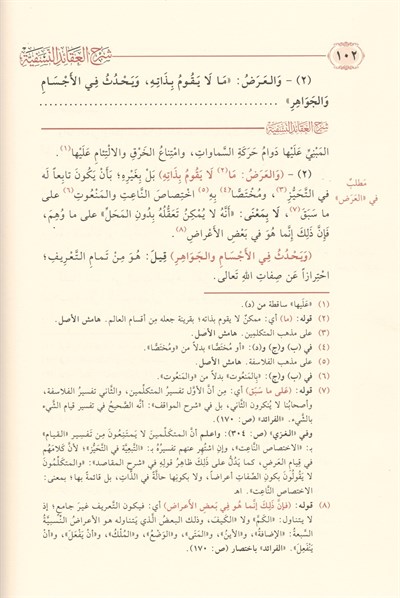 ١٠٢
شرح العقائد النسفية
(٢) - وَالعَرَضُ: «مَا لَا يَقُومُ بِذَاتِهِ، وَيَحْدُثُ فِي الأَجْسَامِ
وَالجَوَاهِرِ» ........................................
شرح العقائد النسفية
المَبْنِيِّ عَلَيْها دَوامُ حَرَكَةِ السَّماواتِ، وامْتِناعُ الخَرْقِ والالْتِئامِ عَلَيْها(١).
(٢) - (وَالعَرَضُ: مَا(٢) لَا يَقُومُ بِذَاتِهِ) بَلْ بِغَيْرِهِ؛ بِأَنْ يَكُونَ تابِعاً لَه
مَطلبٌ
في «العَرَض»
في التَّحَيُّزِ(٣)، ومُخْتَصًّا(٤) بِهِ(٥) اخْتِصاصَ النَّاعِتِ والمَنْعُوتِ(٦) على
ما سَبَقَ(٧)، لا بِمَعْنَى: «أَنَّهُ لا يُمْكِنُ تَعَقُّلُهُ بِدُونِ المَحَلِّ» على ما وُهِمَ،
فَإِنَّ ذَلِكَ إِنَّما هُوَ في بَعْضِ الأَعْراضِ(٨).
(وَيَحْدُثُ فِي الأَجْسَامِ والجَوَاهِرِ) قِيلَ: هُوَ مِنْ تَمامِ التَّعْرِيفِ؛
احْتِرازاً عَن صِفاتِ اللهِ تَعالَى.
(١) «عَلَيْها» ساقطة من (د).
(٢) قوله: (ما) أي: ممكنٌ لا يقوم بذاته؛ بقرينة جعله مِن أقسام العالم. هامش الأصل.
(٣) على مذهب المتكلمين. هامش الأصل.
(٤) في (ب) و(ج) و(د): «أو مُختَصًّا» بدلاً من «ومُختَصًّا».
(٥) على مذهب الفلاسفة. هامش الأصل.
(٦) في (ب) و(ج): «بِالمَنْعوت» بدلاً من «والمَنْعوت».
(٧) قوله: (عَلى ما سَبَقَ) أي: مِن أنَّ الأوَّل تفسيرُ المتكلمين، والثَّاني تفسيرُ الفلاسفة،
وأصحابُنا لا يُنكرون الثَّاني، بل في «شرح المواقف»: أنَّه الصَّحيحُ في تفسير قيام الشَّيء
بالشَّيء. «الفرائد» (ص: ١٧٠).
وفي الغزي» (ص: ٣٠٤): واعلم أنَّ المتكلمينَ لا يَمتَنِعونَ مِن تفسيرِ «القيام»
بـ: «الاختصاص النَّاعت»، وإن اشتُهِر عنهم تفسيرُهُ بـ: «التَّبعيَّة في التَّحيُّز»؛ لأنَّ كلامَهُم
في قيام العَرَض، كما يَدُلُّ على ذلك ظاهرُ قوله في «شرح المقاصد»: «والمتكلِّمونَ
لا يَقُولُونَ بكونِ الصِّفاتِ أعراضاً، ولا بكونِها حالَّةً في الذَّات، بل قائمةً بها؛ بمعنى:
الاختصاصِ النَّاعت». اهـ
(٨) قوله: (فإنَّ ذَلِكَ إنَّما هُو في بَعضِ الأعراضِ) أي: فيكون التَّعريف غيرَ جامع؛ إذ
لا يتناول: «الكَمَّ» ولا «الكَيفَ»، وذلك البعضُ الَّذي يَتناوله هو الأعراضُ النِّسبيَّةُ
السَّبعةُ: «الإضافةُ»، و«الأينُ»، و«المَتَى»، و«الوَضْعُ»، و«المُلْكُ»، و«أنْ يَفْعَلَ»، و«أنْ
يَنْفَعِلَ». «الفرائد» باختصار (ص: ١٧٠).